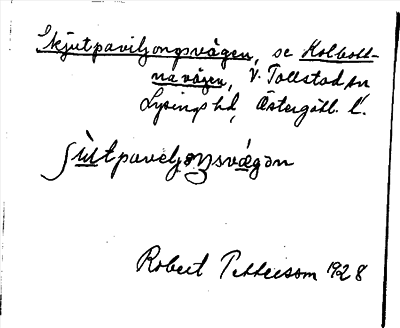 Skjutpaviljongsvägen, se Kolbott-
navägen, V. Tollstad sn
Lysings hd, Östergötl. l.
ʃùtpaveljoŋsvǽgən
Robert Pettersson 1928